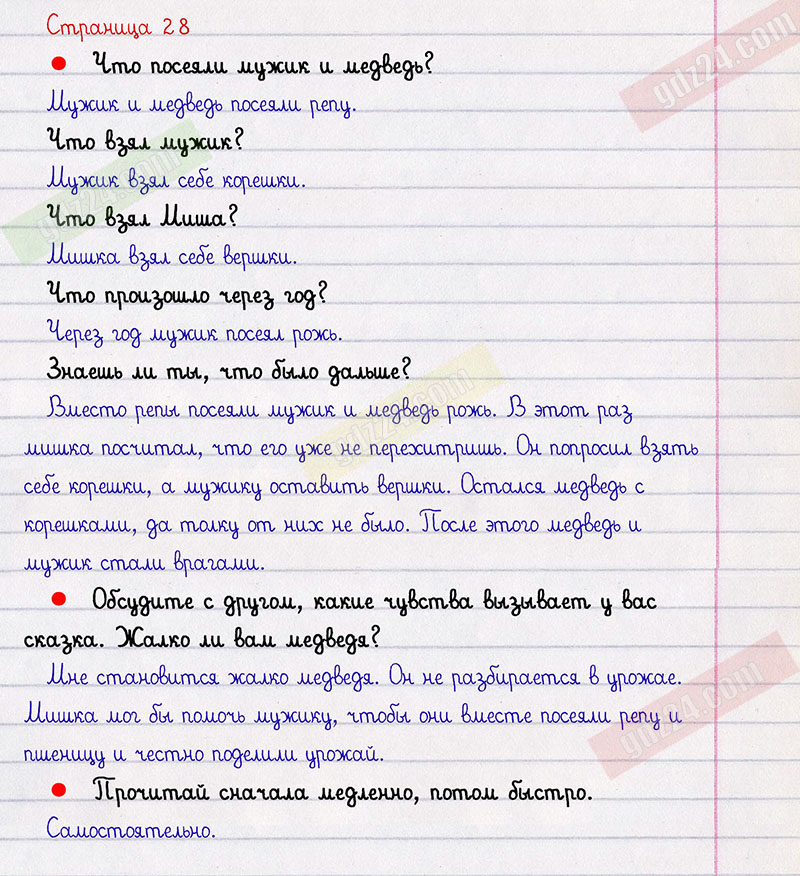 Страница 28
Что посеяли мужик и медведь?
Мужик и медведь посеяли репу.
Что взял мужик?
Мужик взял себе корешки.
Что взял Миша?
Мишка взял себе вершки.
Что произошло через год?
Через год мужик посеял рожь.
Знаешь ли ты, что было дальше?
Вместо репы посеяли мужик и медведь рожь. В этот раз
мишка посчитал, что его уже не перехитришь. Он попросил взять
себе корешки, а мужику оставить вершки. Остался медведь с
корешками, да толку от них не было. После этого медведь и
мужик стали врагами.
Обсудите с другом, какие чувства вызывает у вас
сказка. Жалко ли вам медведя?
Мне становится жалко медведя. Он не разбирается в урожае.
Мишка мог бы помочь мужику, чтобы они вместе посеяли репу и
пшеницу и честно поделили урожай.
Прочитай сначала медленно, потом быстро.
Самостоятельно.
gdz24.com
gdz24.com
gdz24.com
gdz24.com